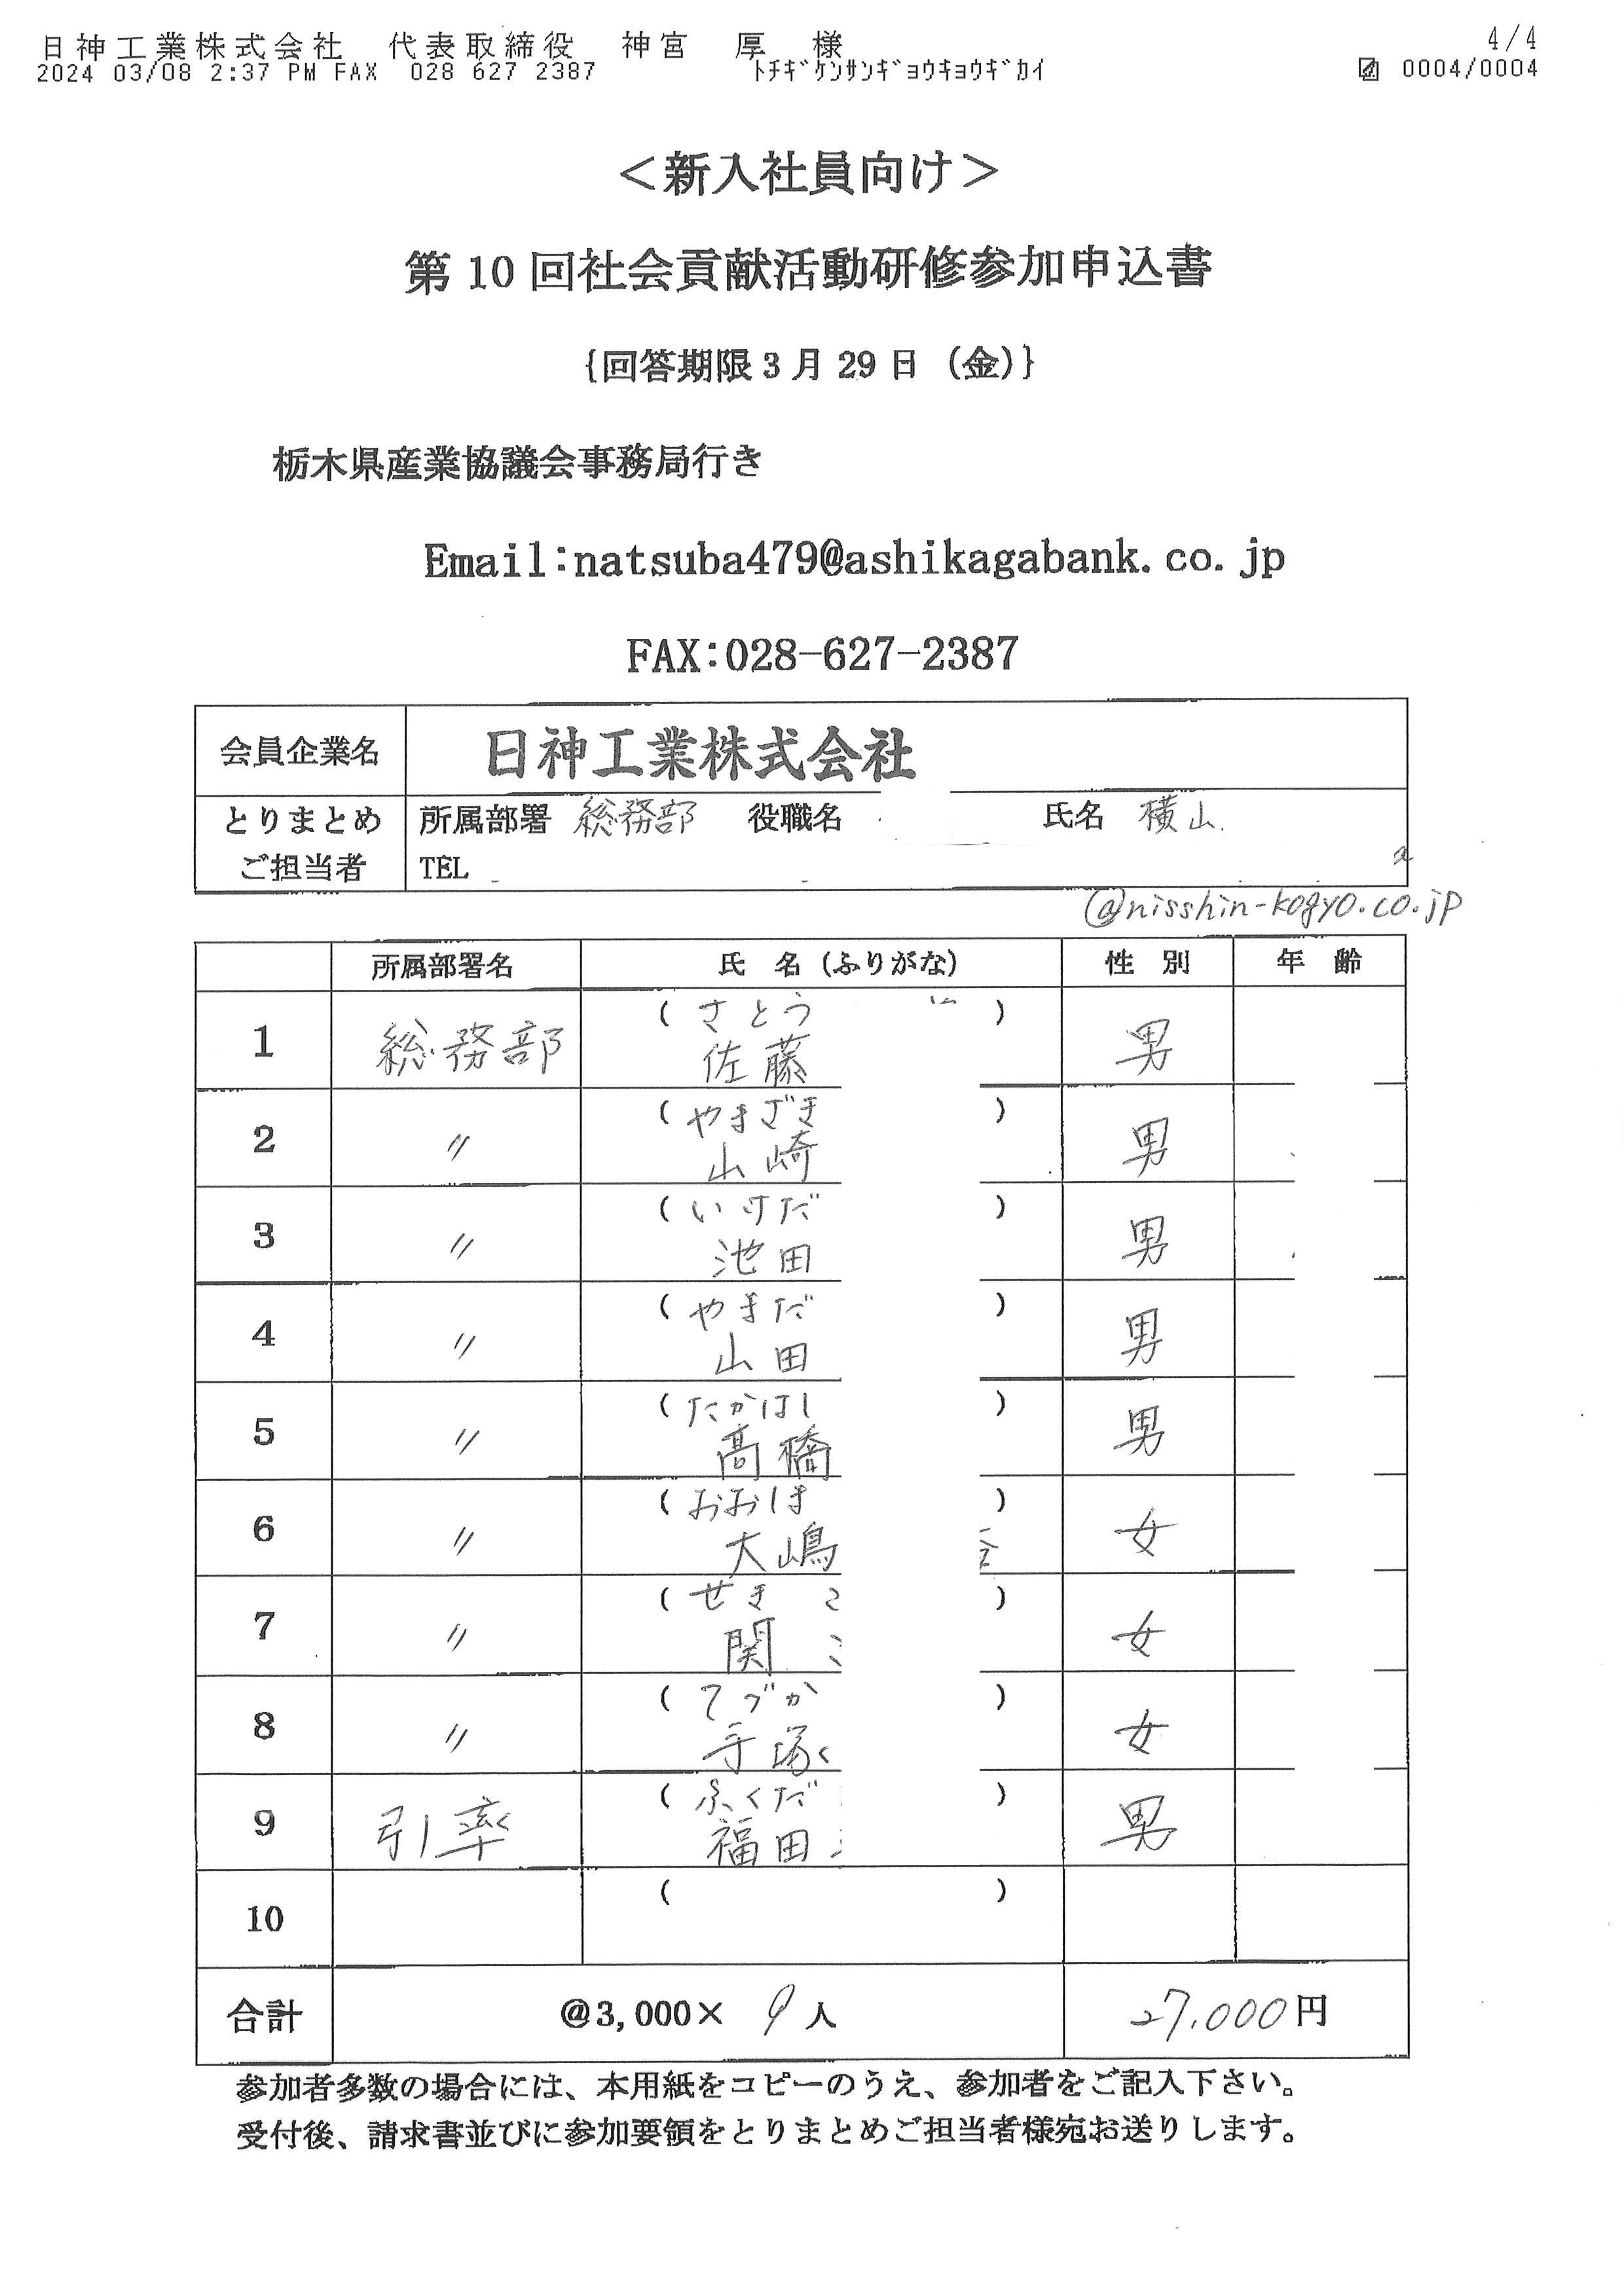 日神工業株式会社 代表取締役 神宮 厚 様 4/4
2024 03/08 2:37 PM FAX 028 627 2387 ﾄﾁｷﾞｹﾝｻﾝｷﾞｮｳｷｮｳｷﾞｶｲ 0004/0004
＜新入社員向け＞
第 10 回社会貢献活動研修参加申込書
{回答期限 3 月 29 日（金）}
栃木県産業協議会事務局行き
Email:natsuba479@ashikagabank.co.jp
FAX:028-627-2387
会員企業名 日神工業株式会社
とりまとめ 所属部署 総務部 役職名 氏名 横山
ご担当者 TEL
@nisshin-kogyo.co.jp
所属部署名 氏 名（ふりがな） 性 別 年 齢
( さとう )
1 総務部 佐藤 男
( やまざき )
2 〃 山崎 男
( いけだ )
3 〃 池田 男
( やまだ )
4 〃 山田 男
( たかはし )
5 〃 髙橋 男
( おおしま )
6 〃 大嶋 女
( せき )
7 〃 関 女
( てづか )
8 〃 手塚 女
( ふくだ )
9 引率 福田 男
( )
10
合計 @3,000× 9 人 27,000円
参加者多数の場合には、本用紙をコピーのうえ、参加者をご記入下さい。
受付後、請求書並びに参加要領をとりまとめご担当者様宛お送りします。